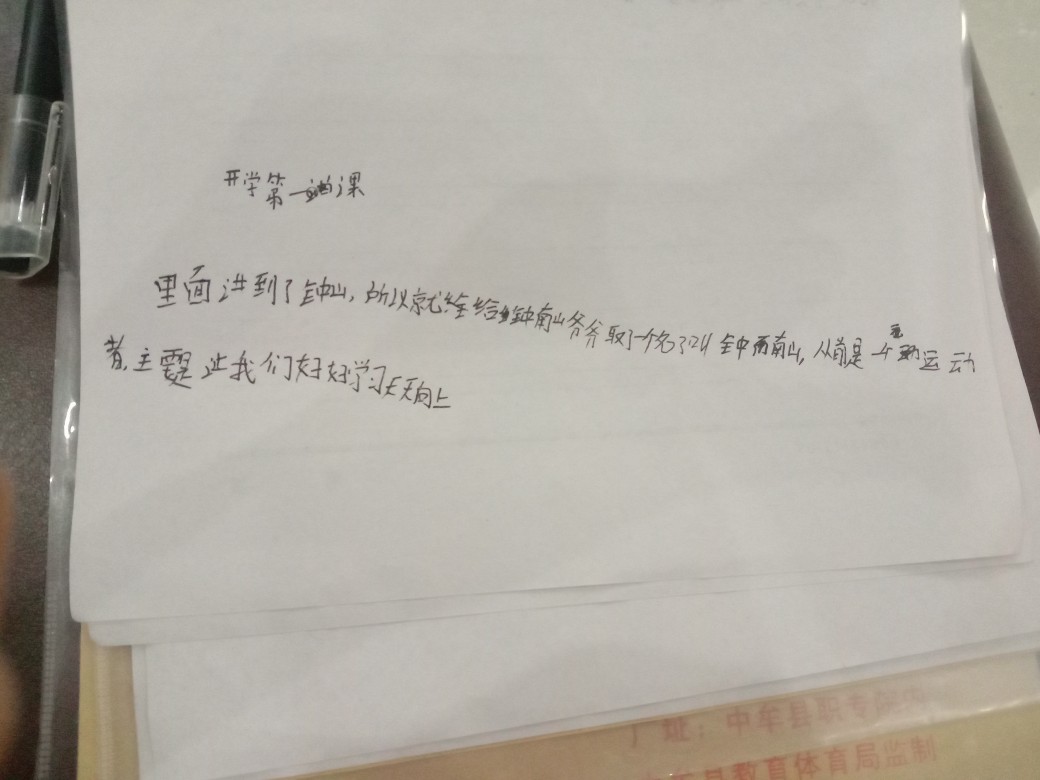 开学第一课
里面讲到了钟山,所以就给钟南山爷爷取了个名字叫钟南山,从前是个运动
者,主要让我们好好学习天天向上
厂址:中牟县职专院内
中牟县教育体育局监制